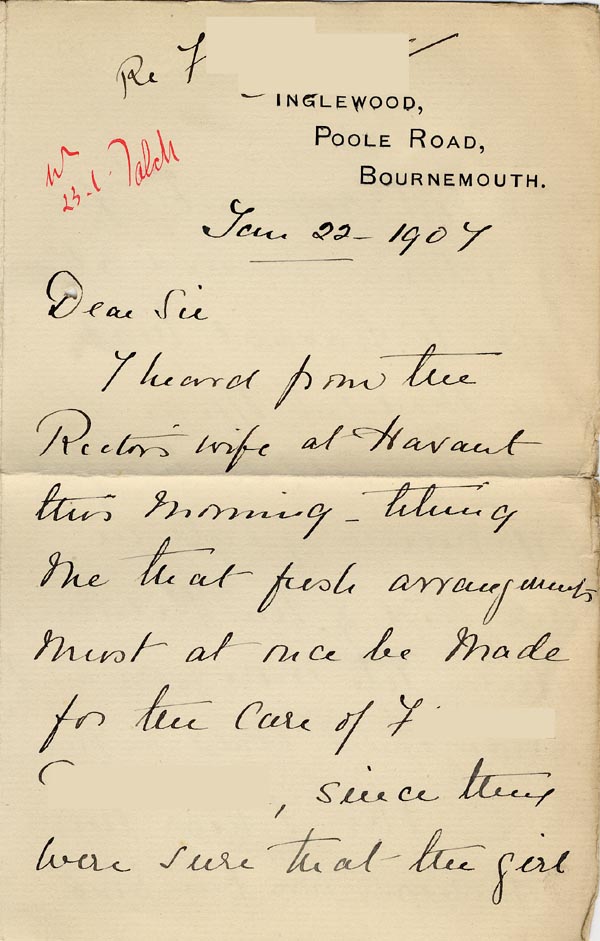 Re F
INGLEWOOD,
POOLE ROAD,
BOURNEMOUTH.
23-1.
Jan 22 - 1907
Dear Sir
I heard from the
Rector's wife at Havant
this morning - telling
me that fresh arrangements
must at once be made
for the care of F
, since they
were sure that the girl